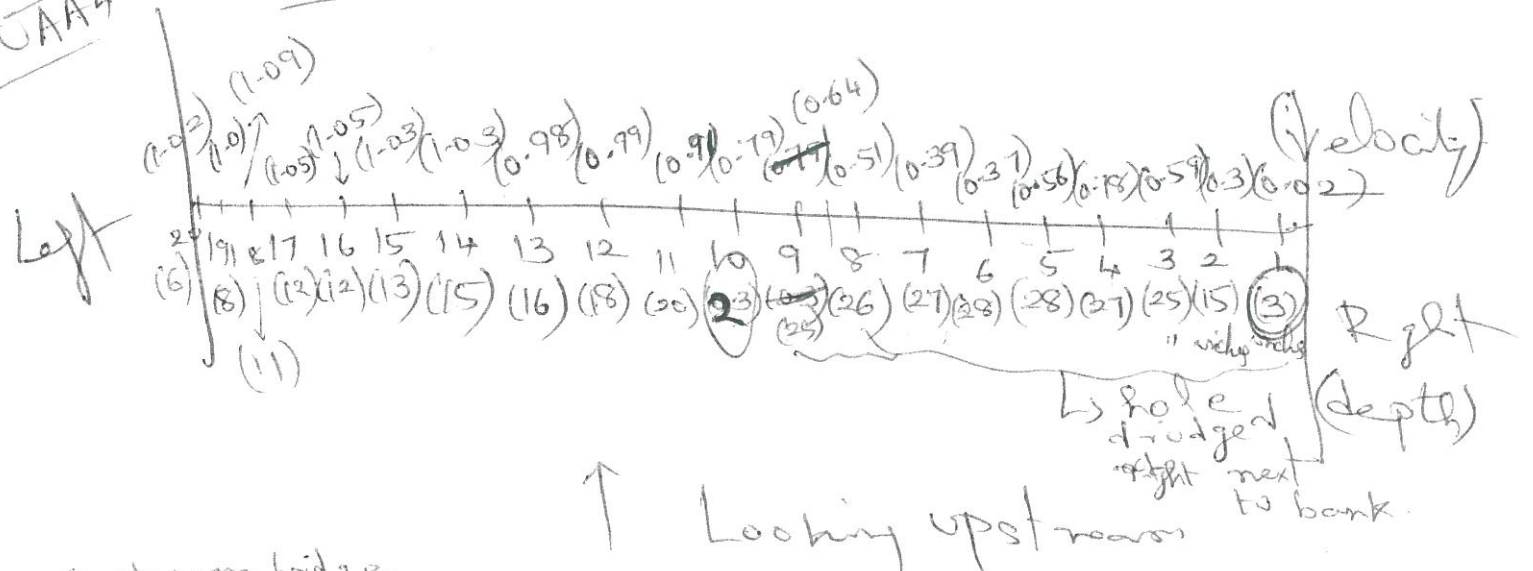 (1.09)
(0.64)
(1.02) (1.0) (1.05) (1.05) (1.03) (1.03) (0.98) (0.99) (0.91) (0.79) (0.51) (0.39) (0.37) (0.56) (0.78) (0.59) (0.3) (0.02) (Velocity)
Left
20 19 18 17 16 15 14 13 12 11 10 9 8 7 6 5 4 3 2 1
(6) (8) (12) (12) (13) (15) (16) (18) (20) (23) (26) (27) (28) (28) (27) (25) (15) (3) Rght
(25)
(11)
(depth)
↳ hole
drudged
right next
to bank.
↑ Looking upstream